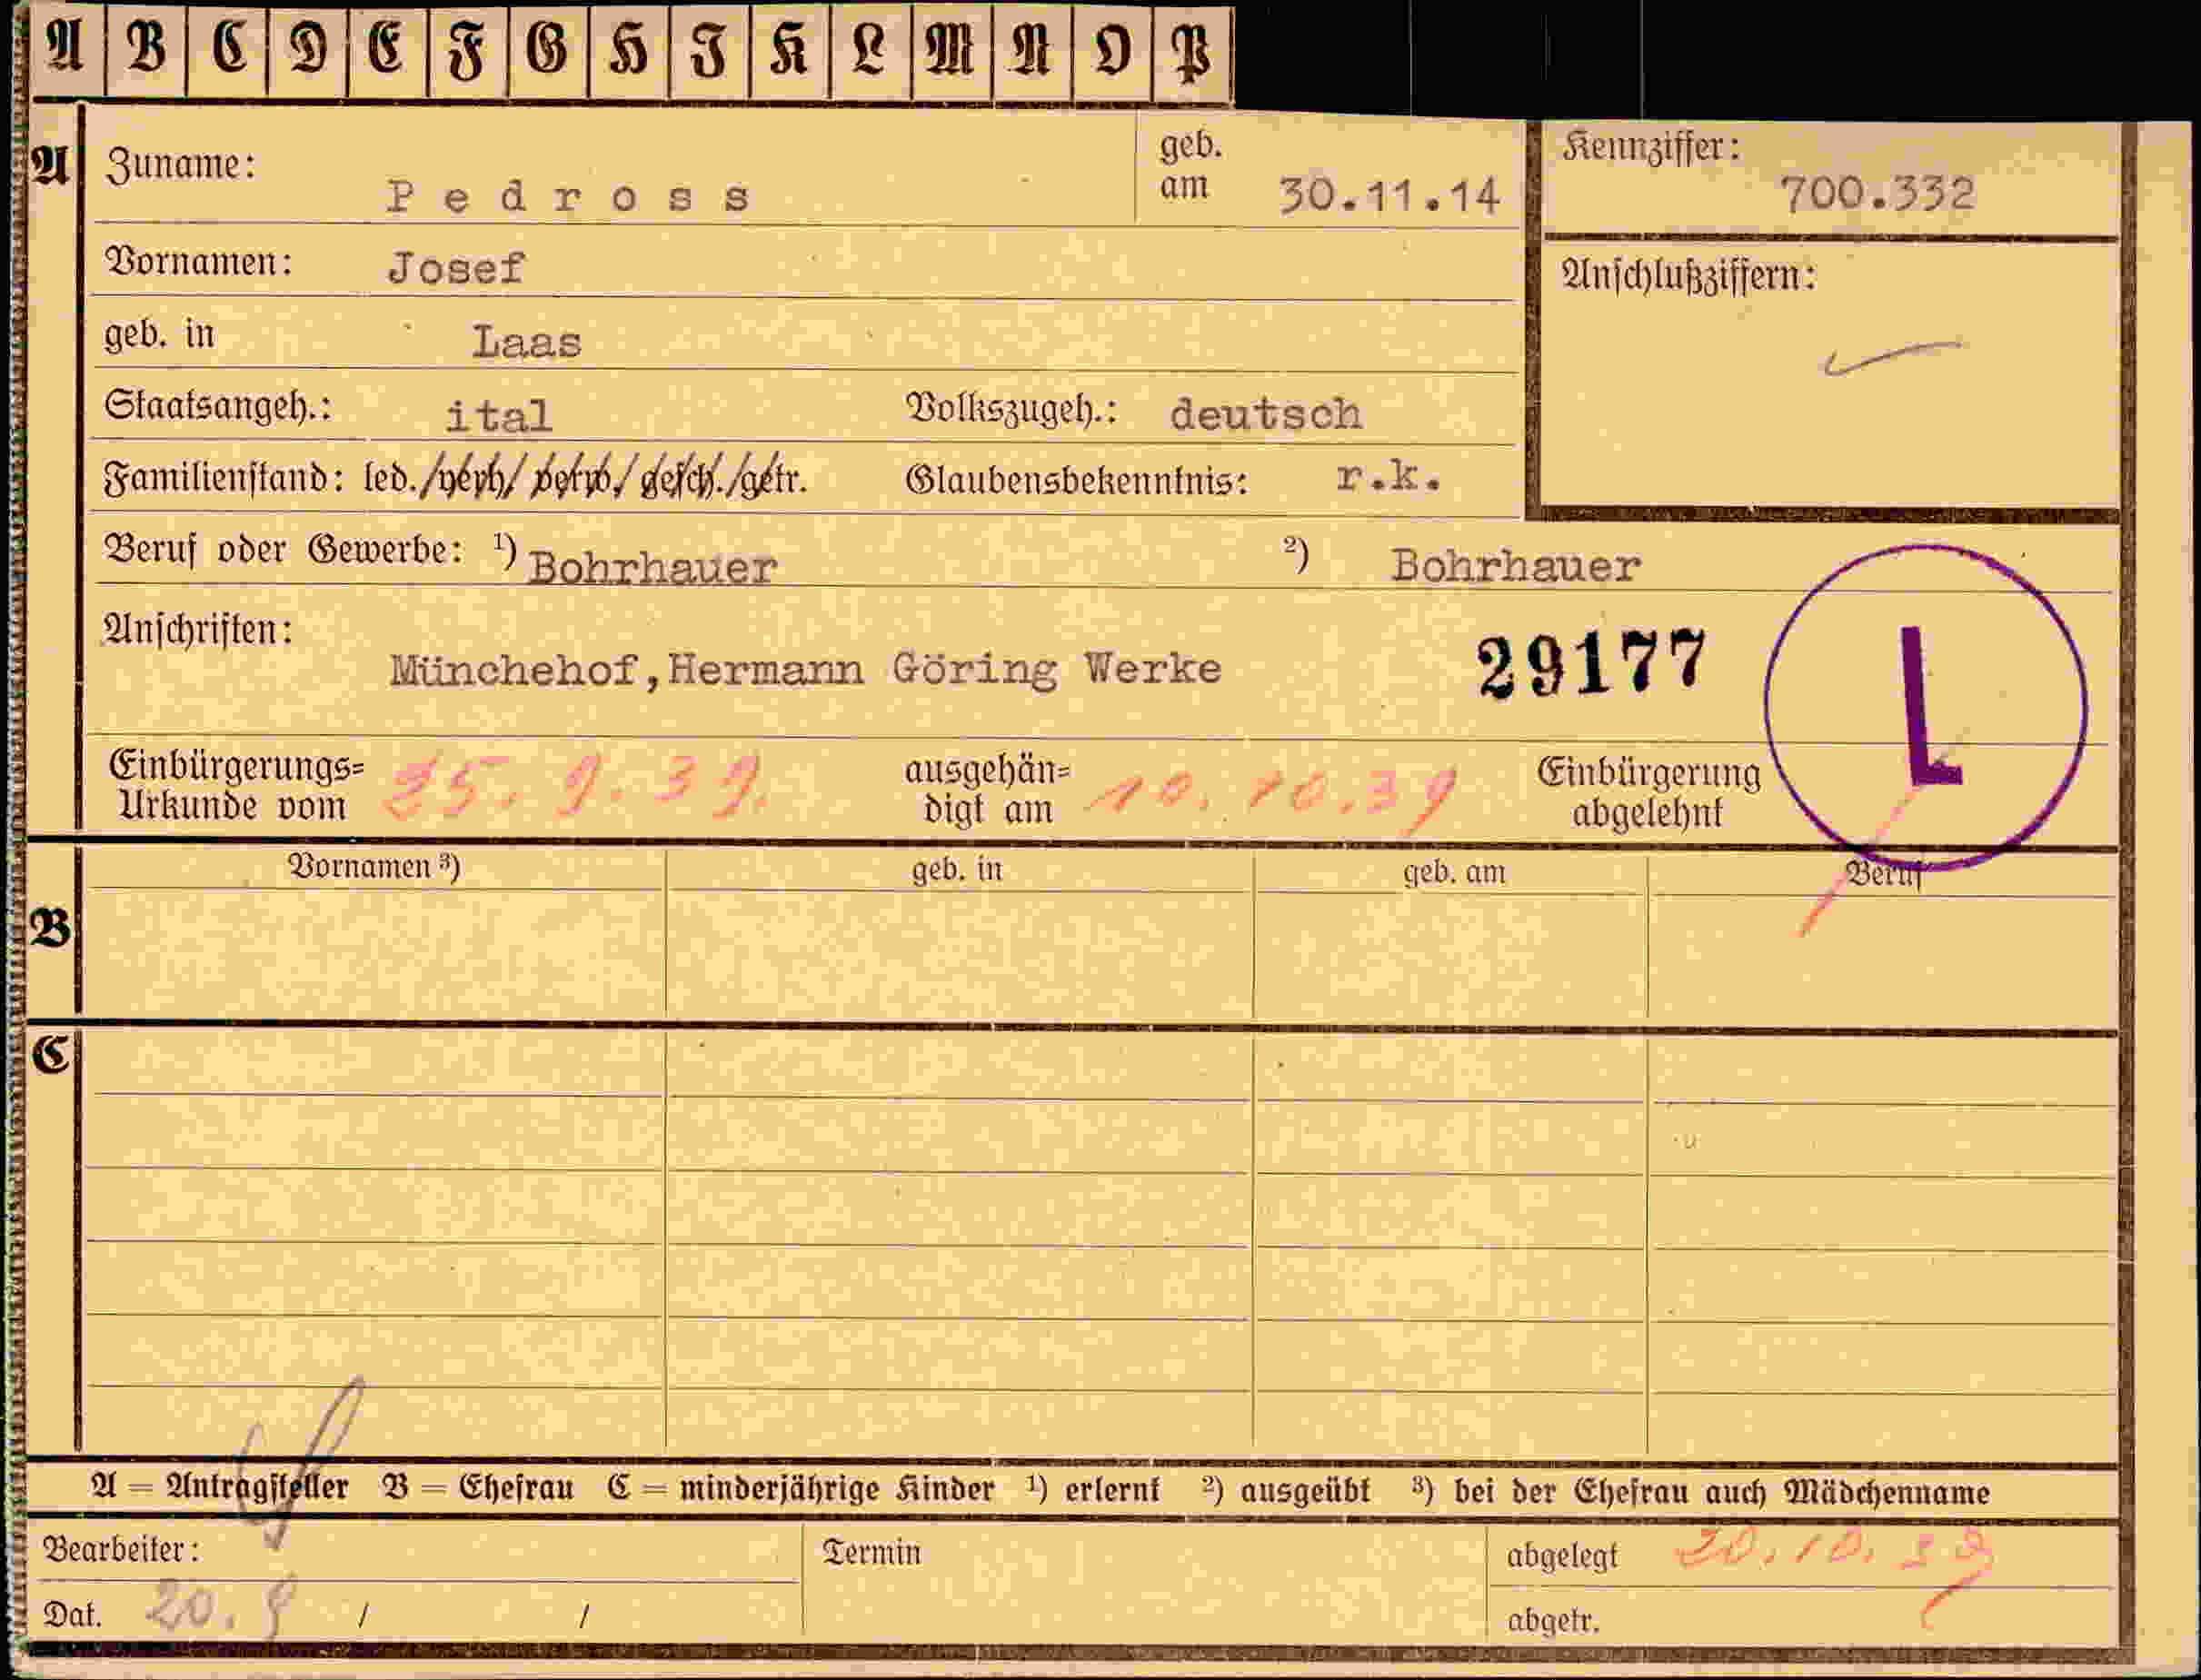 A B C D E F G H I K L M N O P
A Zuname: Pedross geb. am 30.11.14 Kennziffer: 700.332
Vornamen: Josef Anschlußziffern:
geb. in Laas
Staatsangeh.: ital Volkszugeh.: deutsch
Familienstand: led./verh/ verw./ gesch./getr. Glaubensbekenntnis: r.k.
Beruf oder Gewerbe: ¹) Bohrhauer ²) Bohrhauer
Anschriften:
Münchehof,Hermann Göring Werke 29177 L
Einbürgerungs= ausgehän= Einbürgerung
Urkunde vom 25. 9. 39. digt am 10. 10. 39 abgelehnt
Vornamen ³) geb. in geb. am Beruf
B
C
A = Antragsteller B = Ehefrau C = minderjährige Kinder ¹) erlernt ²) ausgeübt ³) bei der Ehefrau auch Mädchenname
Bearbeiter: Termin abgelegt 20. 10. 39
Dat. 20. 9 / / abgetr.